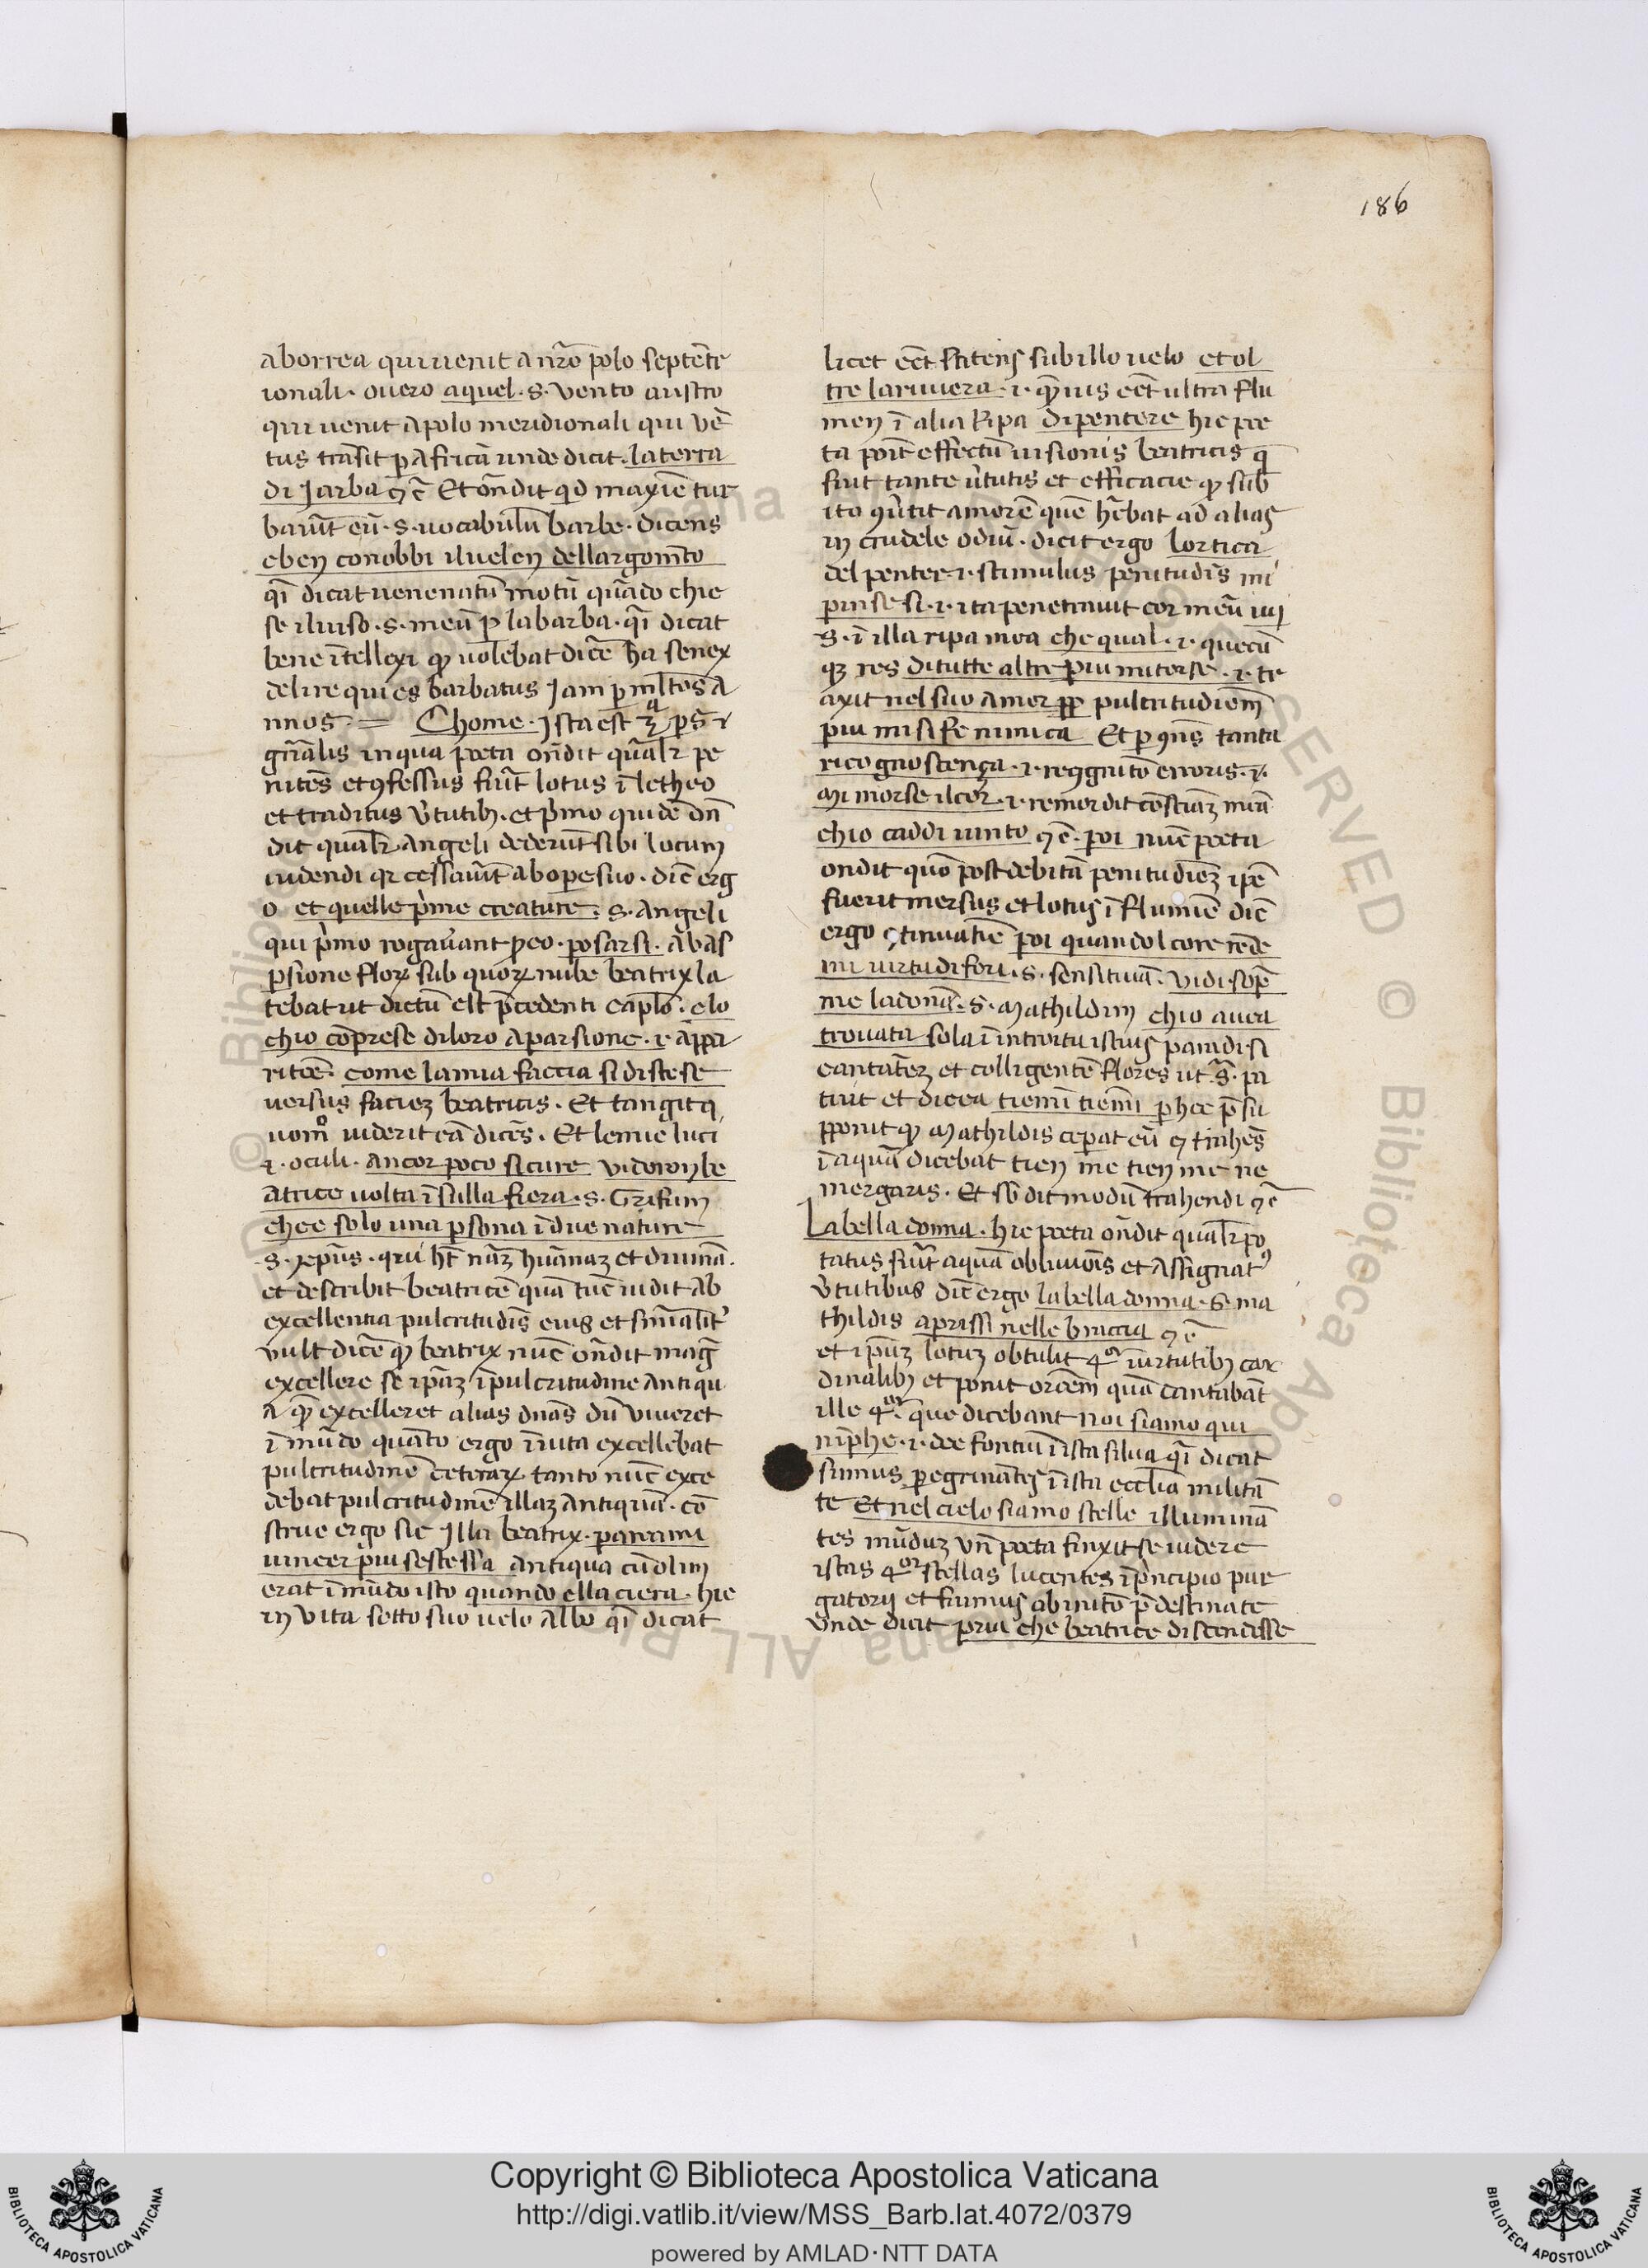 186
aborrea qui uenit a nr̄o polo septētr
ionali. ouero aquel .s. vento austro
qui uenit a polo meridionali qui vē
tus trāsit p africā unde dicit. la terra
di Jarba ⁊c̄ Et on̄dit qd maxīe tur
barūt eū .s. uocabulū barbe. dicens
e ben conobbi il uelen dellargomēto
q̄i dicat uenenatū motū quādo chie
se il uiso .s. meū p la barba. q̄i dicat
bene ītellexi q uolebat dicē ha senex
delire qui es barbatus Jam p mltos a
nnos. = Chome. Ista est 3ᵃ ps
gn̄alis in qua poeta on̄dit qualr pe
nitēs et ꝯfessus fuit lotus ī letheo
et traditus v̓tutibꝫ. et p̓mo quidē on̄
dit qualr Angeli dederūt sibi locum
uidendi qr cessauūt ab ope suo. dic̄ erg
o et quelle p̓me creature .s. Angeli
qui p̓mo rogauant p eo. posarsi. abas
psione floꝝ sub quoꝝ nube beatrix la
tebat ut dictū est p̄cedenti caplo. e lo
chio cōprese di loro aparsione .i. appa
ritōe. come la mia faccia si distese
uersus facieꝫ beatricis. Et tangit q
uom̊ uiderit eā dicēs. Et le mie luci
.i. oculi. ancor poco sicure videron be
atrice uolta ī sulla fiera .s. Grifum
chee solo una psona ī due nature
.s. xp̄us. qui ht̄ nāꝫ huānaꝫ et diuinā.
et describit beatricē quā tūc uidit ab
excellentia pulcritudīs eius et finalit̓
vult dicē q beatrix nūc on̄dit mag̅
excellere se ip̄aꝫ ī pulcritudine antiqu
a q excelleret alias dn̄as dū viueret
ī mūdo quāto ergo ī uita excellebat
pulcritudinē ceteraꝝ tanto nūc exce
debat pulcritudinē illaꝫ antiquā. cō
strue ergo sic Illa beatrix. pareami
uincer piu se stessa antiqua cū olim
erat ī mūdo isto quando ella ciera. hic
in vita sotto suo uelo Albo q̄i dicat
licet eēt stītens sub illo uelo et ol
tre la riuiera .i. q̄uis eēt ultra flu
men ī alia Ripa di pentere hic poe
ta poīt effectū uisionis beatricis q
fuit tante v̓tutis et efficacie q sub
ito ꝯu̓tit amorē quē hēbat ad alias
in crudele odiū. dicit ergo lortica
del penter .i. stimulus penitudīs mi
punse si .i. ita penetrauit cor meū iui
.s. ī illa ripa mea che qual .i. quecū
qꝫ res di tutte altre piu mi torse .i. tr
axit nel suo amor pp pulcritudiem
piu mi si fe nimica Et p ꝯn̄s tanta
ricognoscença .i. recꝯgnitō erroris .i.
mi morse il cor .i. remordit cōsciaꝫ meā
chio caddi uinto ⁊c̄. poi nūc poeta
ondit quō post debitā penitudieꝫ ipē
fuerit mersus et lotus ī flumīe dic̄
ergo ꝯtinuatīe poi quandol core rēde
mi uirtu di fori .s. sensitiuā. vidi sopē
me la donā .s. Mathildim chio auea
trouata sola ī introitu istius paradisi
cantāteꝫ et colligentē flores ut .s̄. pa
tuit et dicea tiemī tiemī p hec p̄su
pponit q Mathildis ceperat eū ⁊ tirhēs
ī aquā dicebat tien me tien me ne
mergaris. Et sb̄dit modū trahendi ⁊c̄
La bella donna. hic poeta on̄dit qualr po
tatus fuit aquā obliuiōis et assignat᷒
v̓tutibus dic̄ ergo la bella donna .s. ma
thildis aprissi nelle braccia ⁊c̄
et ip̄uꝫ lotuꝫ obtulit 4ᵒʳ uirtutibꝫ car
dinalibꝫ et ponit orōem quā cantabāt
ille 4ᵒʳ. que dicebant noi siamo qui
nīphe .i. dee fontiū ī ista silua q̄i dicat
sumus peregrinātes ī ista ecclīa militā
te Et nel cielo siamo stelle illuminā
tes mūduꝫ vn̄ poeta finxit se uidere
istas 4ᵒʳ stellas lucentes ī p̓ncipio pur
gatorij et fuimus ab initō p̄destinate
vnde dicit pria che beatrice discendesse
Copyright © Biblioteca Apostolica Vaticana
http://digi.vatlib.it/view/MSS_Barb.lat.4072/0379
powered by AMLAD·NTT DATA
BIBLIOTECA APOSTOLICA VATICANA
BIBLIOTECA APOSTOLICA VATICANA